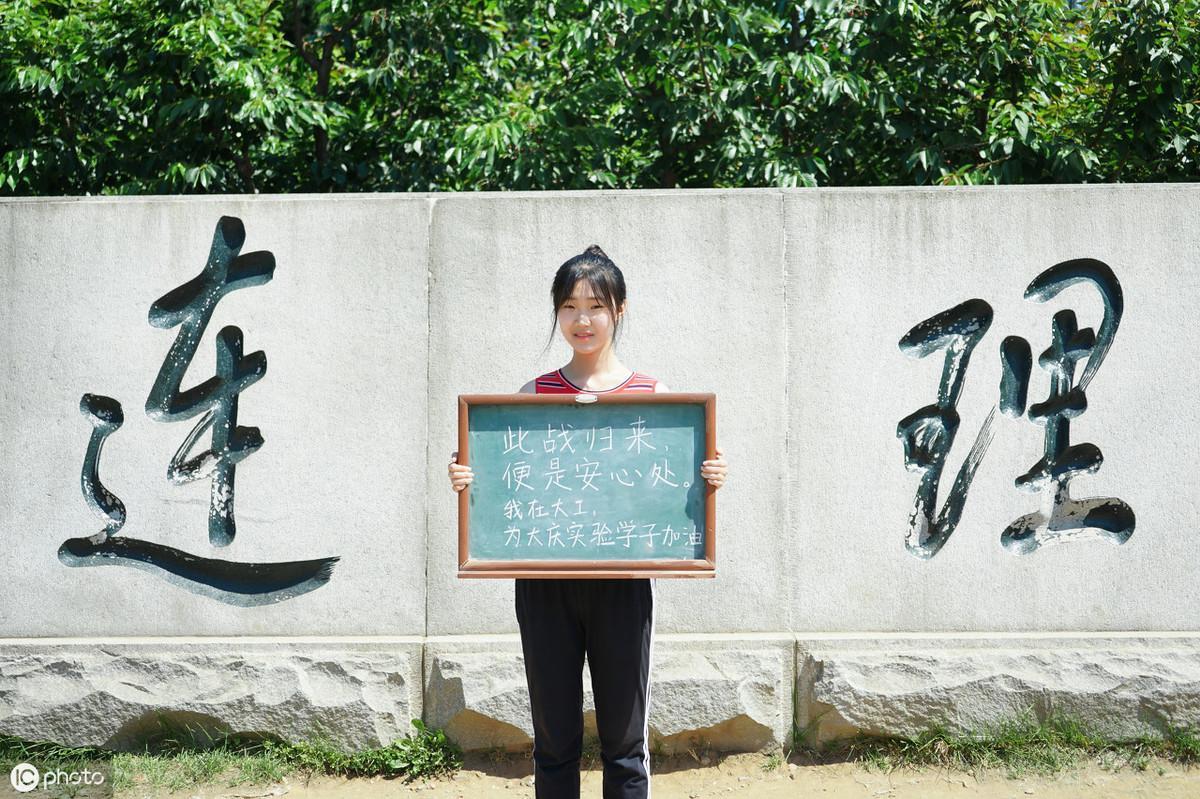 连 理
此战归来,
便是安心处。
我在大工,
为大庆实验学子加油
IC photo